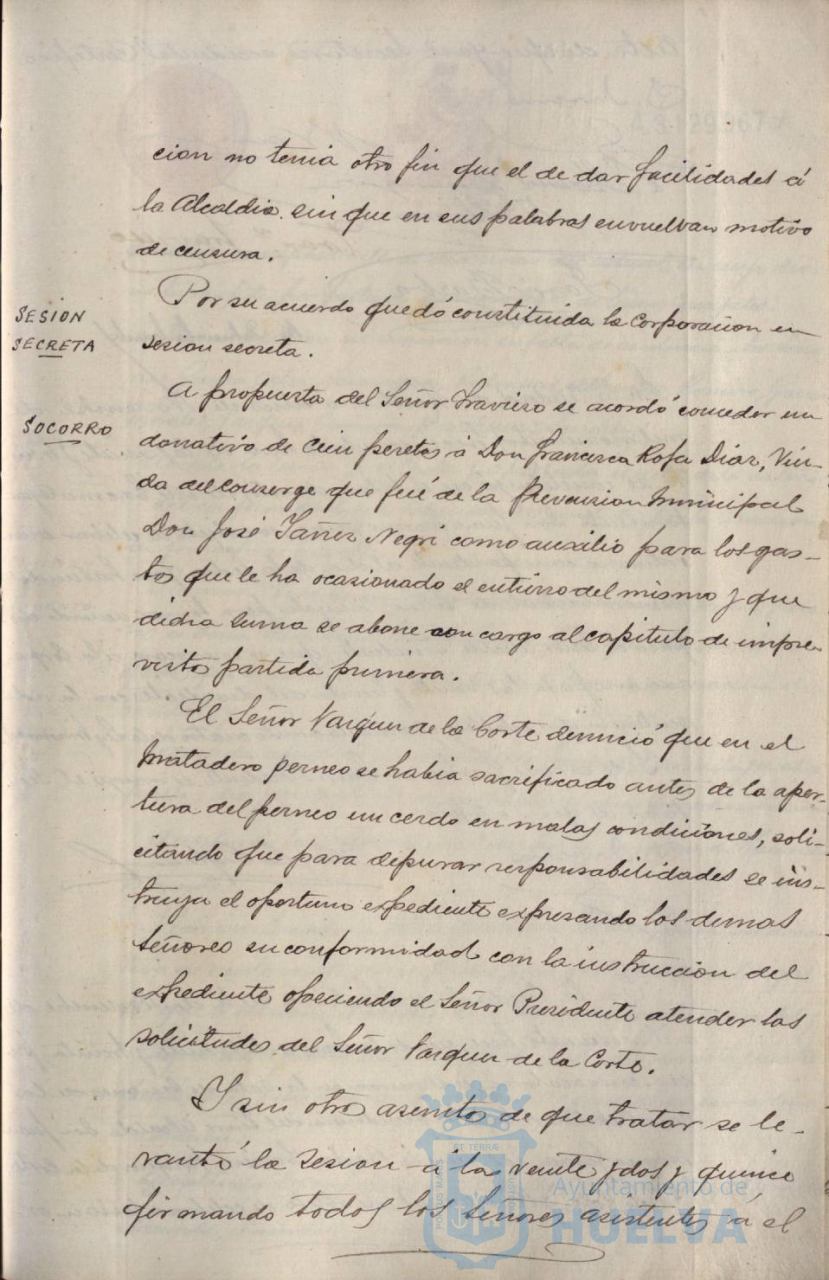 cion no tenia otro fin que el de dar facilidades á
la Alcaldia sin que en sus palabras envuelvan motivo
de censura.
SESION
SECRETA
Por su acuerdo quedó constituida la Corporacion en
sesion secreta.
SOCORRO
A propuesta del Señor Travieso se acordó conceder un
donativo de cien pesetas á Don Francisca Rofa Diaz, Viu-
da del Conserge que fué de la Prevension Municipal
Don José Yañez Negri como auxilio para los gas-
tos que le ha ocasionado el entierro del mismo y que
dicha suma se abone con cargo al capitulo de impre-
vistos partida primera.
El Señor Vazquez de la Corte denunció que en el
Matadero perneo se habia sacrificado antes de la aper-
tura del perneo un cerdo en malas condiciones, soli-
citando que para depurar responsabilidades se ins-
truya el oportuno expediente expresando los demas
Señores su conformidad con la instruccion del
expediente ofreciendo el Señor Presidente atender las
solicitudes del Señor Vazquez de la Corte.
Y sin otros asuntos de que tratar se le-
vantó la sesion á la veinte y dos y quince
firmando todos los Señores asistentes á el
Ayuntamiento de
HUELVA